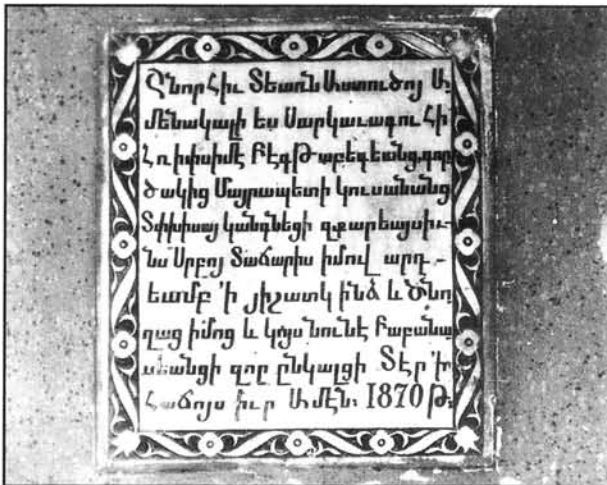 Շնորհիւ Տեառն Աստուծոյ Ա-
մենակալի ես Սարկաւագու հի
Հռիփսիմէ Բէգթաբեգեանց, գոր
ծակից Մայրապետի կուսանանց
Տփխիսայ կանգնեցի զքարեայսիւ-
նս Սրբոյ Տաճարիս իմով արդ-
եամբ ՚ի յիշատակ ինձ և ծնո
ղաց իմոց և կոյս Նունէ
զոր ընկալցի Տէր ՚ի
հաճոյս իւր Ամէն: 1870 Թ: